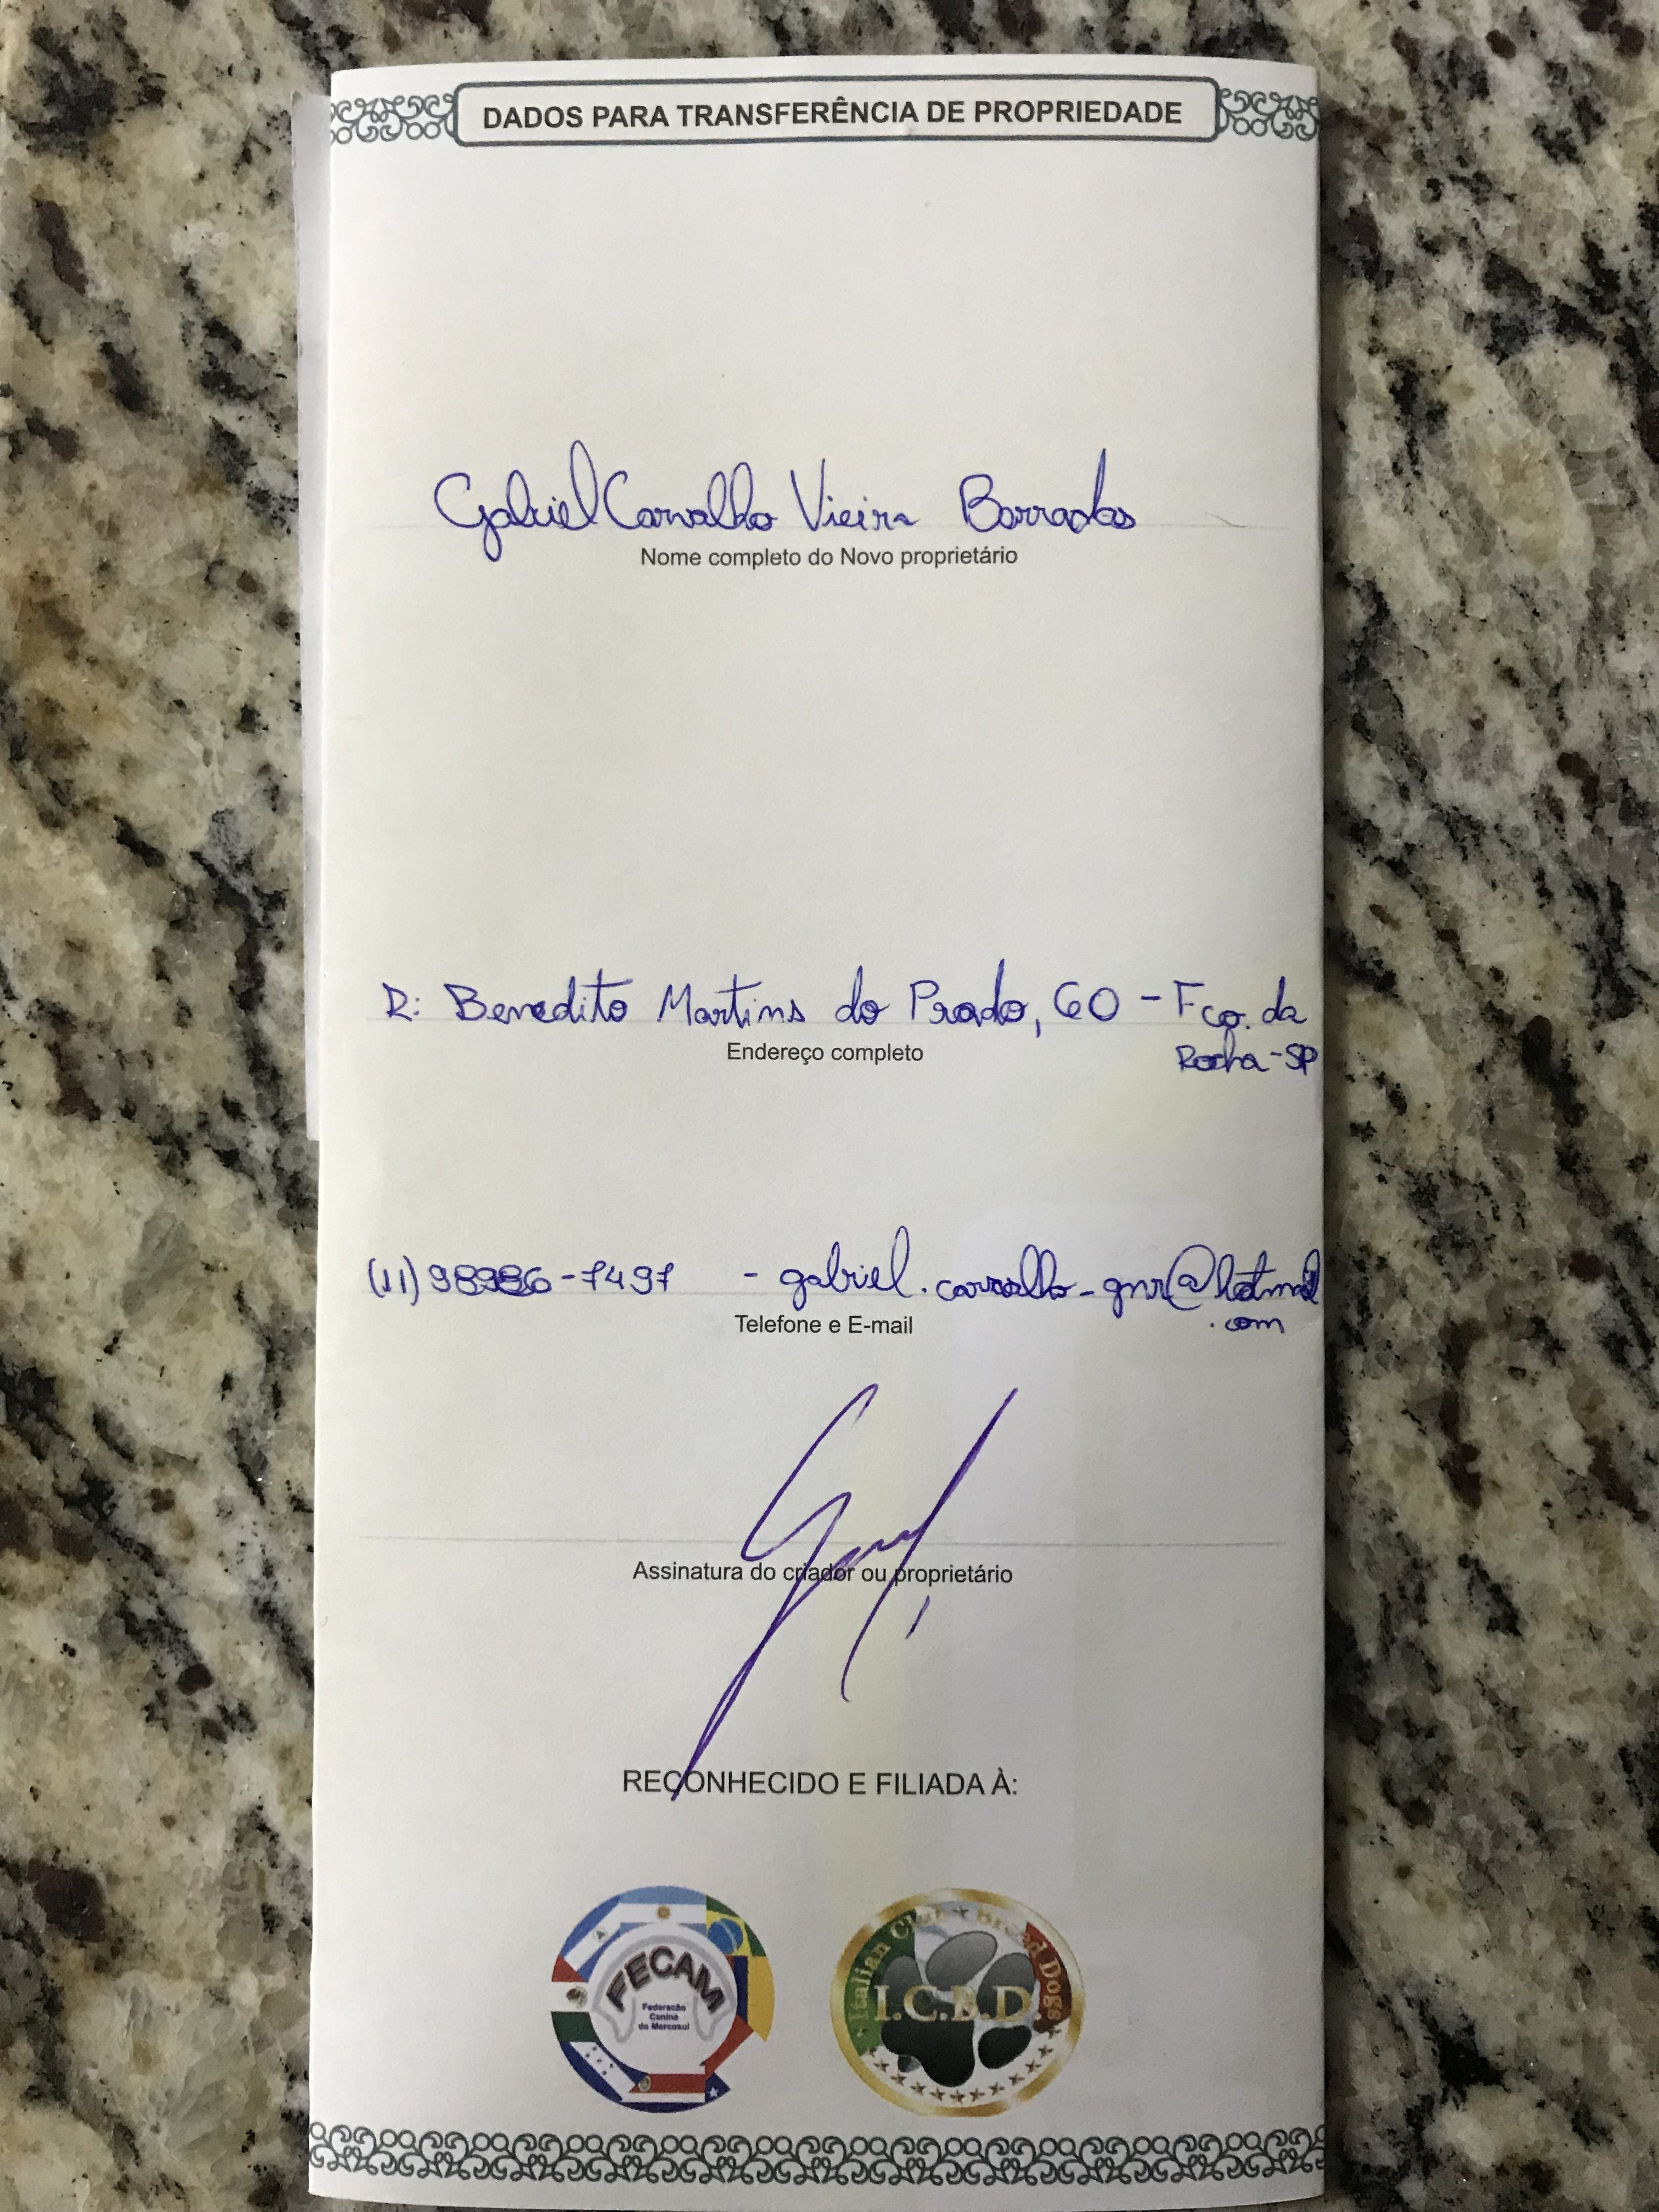 DADOS PARA TRANSFERÊNCIA DE PROPRIEDADE
Gabriel Carvalho Vieira Barradas
Nome completo do Novo proprietário
R: Benedito Martins do Prado, 60 - Fco. da
Rocha - SP
Endereço completo
(11) 98986-7497 - gabriel.carvalho_gnr@hotmail
.com
Telefone e E-mail
Assinatura do criador ou proprietário
RECONHECIDO E FILIADA À:
FECAM
Federação
Canina
do Mercosul
Italian Club ★ Breed Dogs
I.C.B.D.